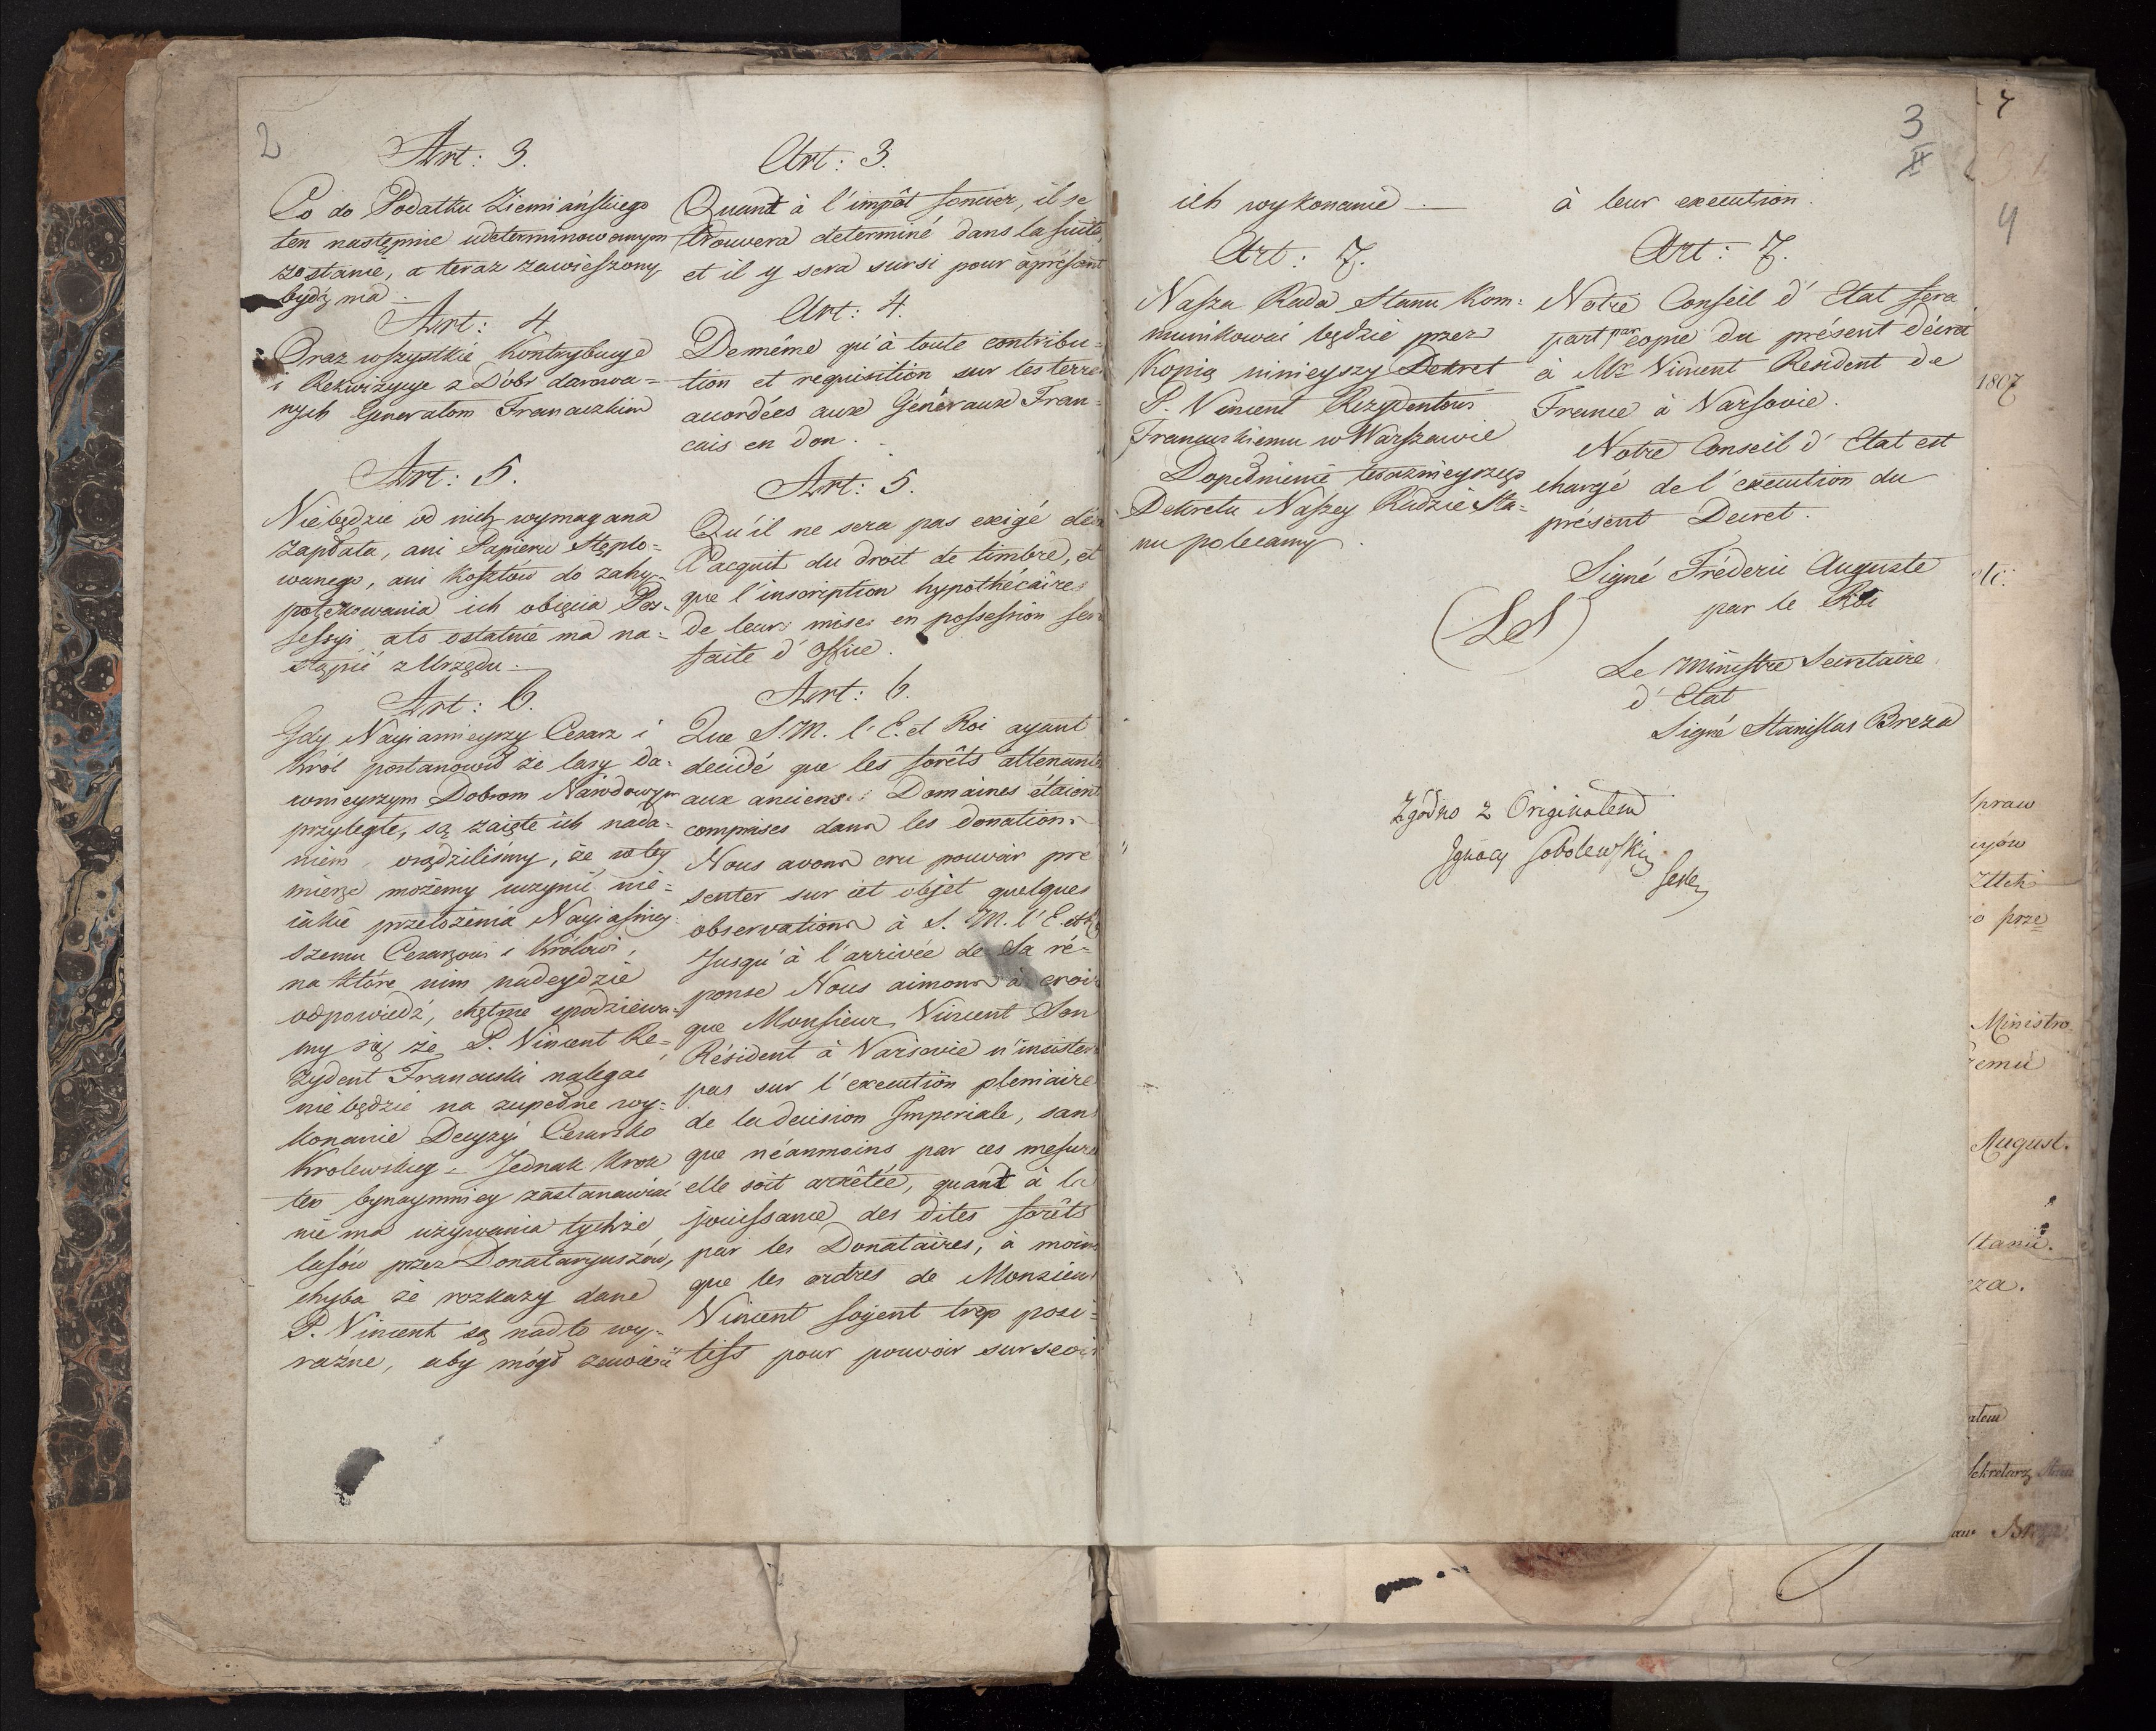 2
Art: 3.
Co do Podatku Ziemiańskiego
ten następnie udeterminowanym
zostanie, a teraz zawieszony
bydź ma.
Art: 4.
Oraz wszystkie Kontrybucye
i Rekwizycye z Dóbr darowa=
nych Generałom Francuzkim
Art: 5.
Niebędzie od nich wymagana
zapłata, ani Papieru Stęplo=
wanego, ani kosztów do zahy=
potekowania ich obięcia Pos=
sessyi, ato ostatnie ma na=
stąpić z Urzędu.
Art: 6.
Gdy Nayiaśnieyszy Cesarz i
Król postanowił że lasy da=
wnieyszym Dobrom Narodowym
przyległe, są zaięte ich nada=
niem, osądziliśmy, że w tey
mierze możemy uczynić nie=
iakie przełożenia Nayiaśniey=
szemu Cesarzowi i Królowi,
na które nim nadeydzie
odpowiedź, chętnie spodziewa=
my się że P. Vincent Re=
zydent Francuski nalegać
nie będzie na zupełne wy=
konanie Decyzyi Cesarsko
Krolewskiey. Jednak Krok
ten bynaymniey zastanawiać
nie ma używania tychże
lasów przez Donataryuszów,
chyba że rozkazy dane
P. Vincent są nadto wy=
raźne, aby mógł zawiesić
Art: 3.
Quant à l'impôt foncier, il se
trouvera determiné dans la suite,
et il y sera sursi pour àprésent
Art: 4.
De même qu'à toute contribu=
tion et requisition sur les terres
accordées aux Généraux Fran=
cais en don.
Art: 5.
Qu'il ne sera pas exigé d'eux
l'acquit du droit de timbre, et
que l'inscription hypothécaire
de leurs mises en possession sera
faite d'Office.
Art: 6.
Que S. M. l'E. et Roi ayant
decidé que les forêts attenants
aux anciens Domaines étaient
comprises dans les donations
Nous avons cru pouvoir pre
senter sur cet objet quelques
observations à S. M. l'E. et R
Jusqu'à l'arrivée de Sa ré=
ponse Nous aimons à croire
que Monsieur Vincent Son
Résident à Varsovie n'insistera
pas sur l'execution pleniaire
de la decision Imperiale, sans
que néanmoins par ces mesures
elle soit arrêtée, quant à la
jouissance des dites forêts
par les Donataires, à moins
que les ordres de Monsieur
Vincent soyent trop posi=
tifs pour pouvoir surseoir
3
II
ich wykonanie
Art: 7.
Nasza Rada Stanu Kom=
munikować będzie przez
Kopią ninieyszy Dekret
P. Vincent Rezydentowi
Francuskiemu w Warszawie
Dopełnienie terażnieyszego
Dekretu Naszey Radzie Sta=
nu polecamy.
à leur execution.
Art: 7.
Notre Conseil d'Etat fera
part par copie du présent décret
à Mr Vincent Resident de
France à Varsovie.
Notre Conseil d'Etat est
chargé de l'execution du
présent Decret.
Signé Fréderic Auguste
par le Roi
(LS)
Le Ministre Secretaire
d'Etat
Signé Stanislas Breza
Zgodno z Originałem
Ignacy Sobolewski
4
1807
praw
prze
Ministro
emu
August.
Stanu.
za.
Sekretarz